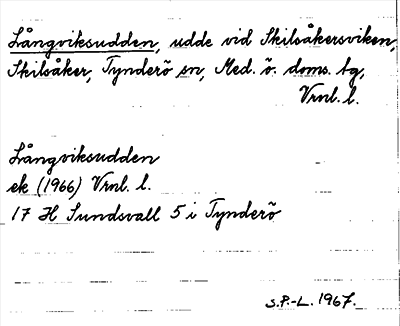 Långviksudden, udde vid Skilsåkersviken,
Skilsåker, Tynderö sn, Med. ö. doms. tg,
Vrnl. l.
Långviksudden
ek (1966) Vrnl. l.
17 H Sundsvall 5 i Tynderö
S.P.-L. 1967.